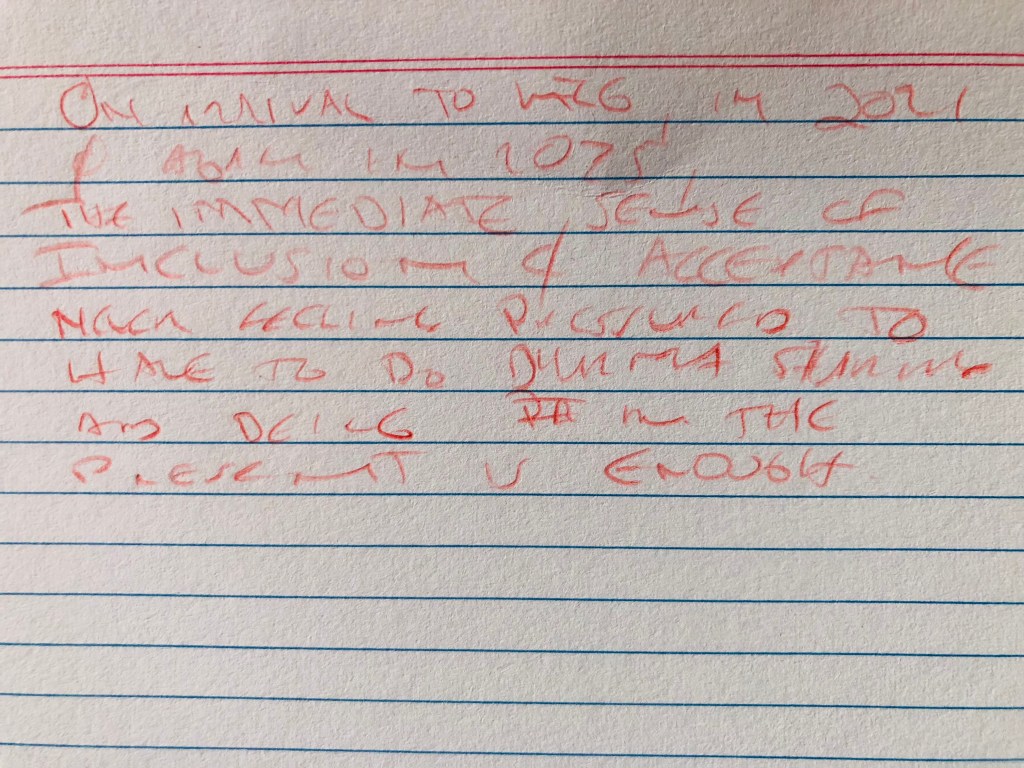 ON ARRIVAL TO IN 2021
& AGAIN IN 2025,
THE IMMEDIATE SENSE OF
INCLUSION & ACCEPTANCE
NEVER FEELING PRESSURED TO
HAVE TO DO DHARMA SHARING
AND BEING IN THE
PRESENT IS ENOUGH